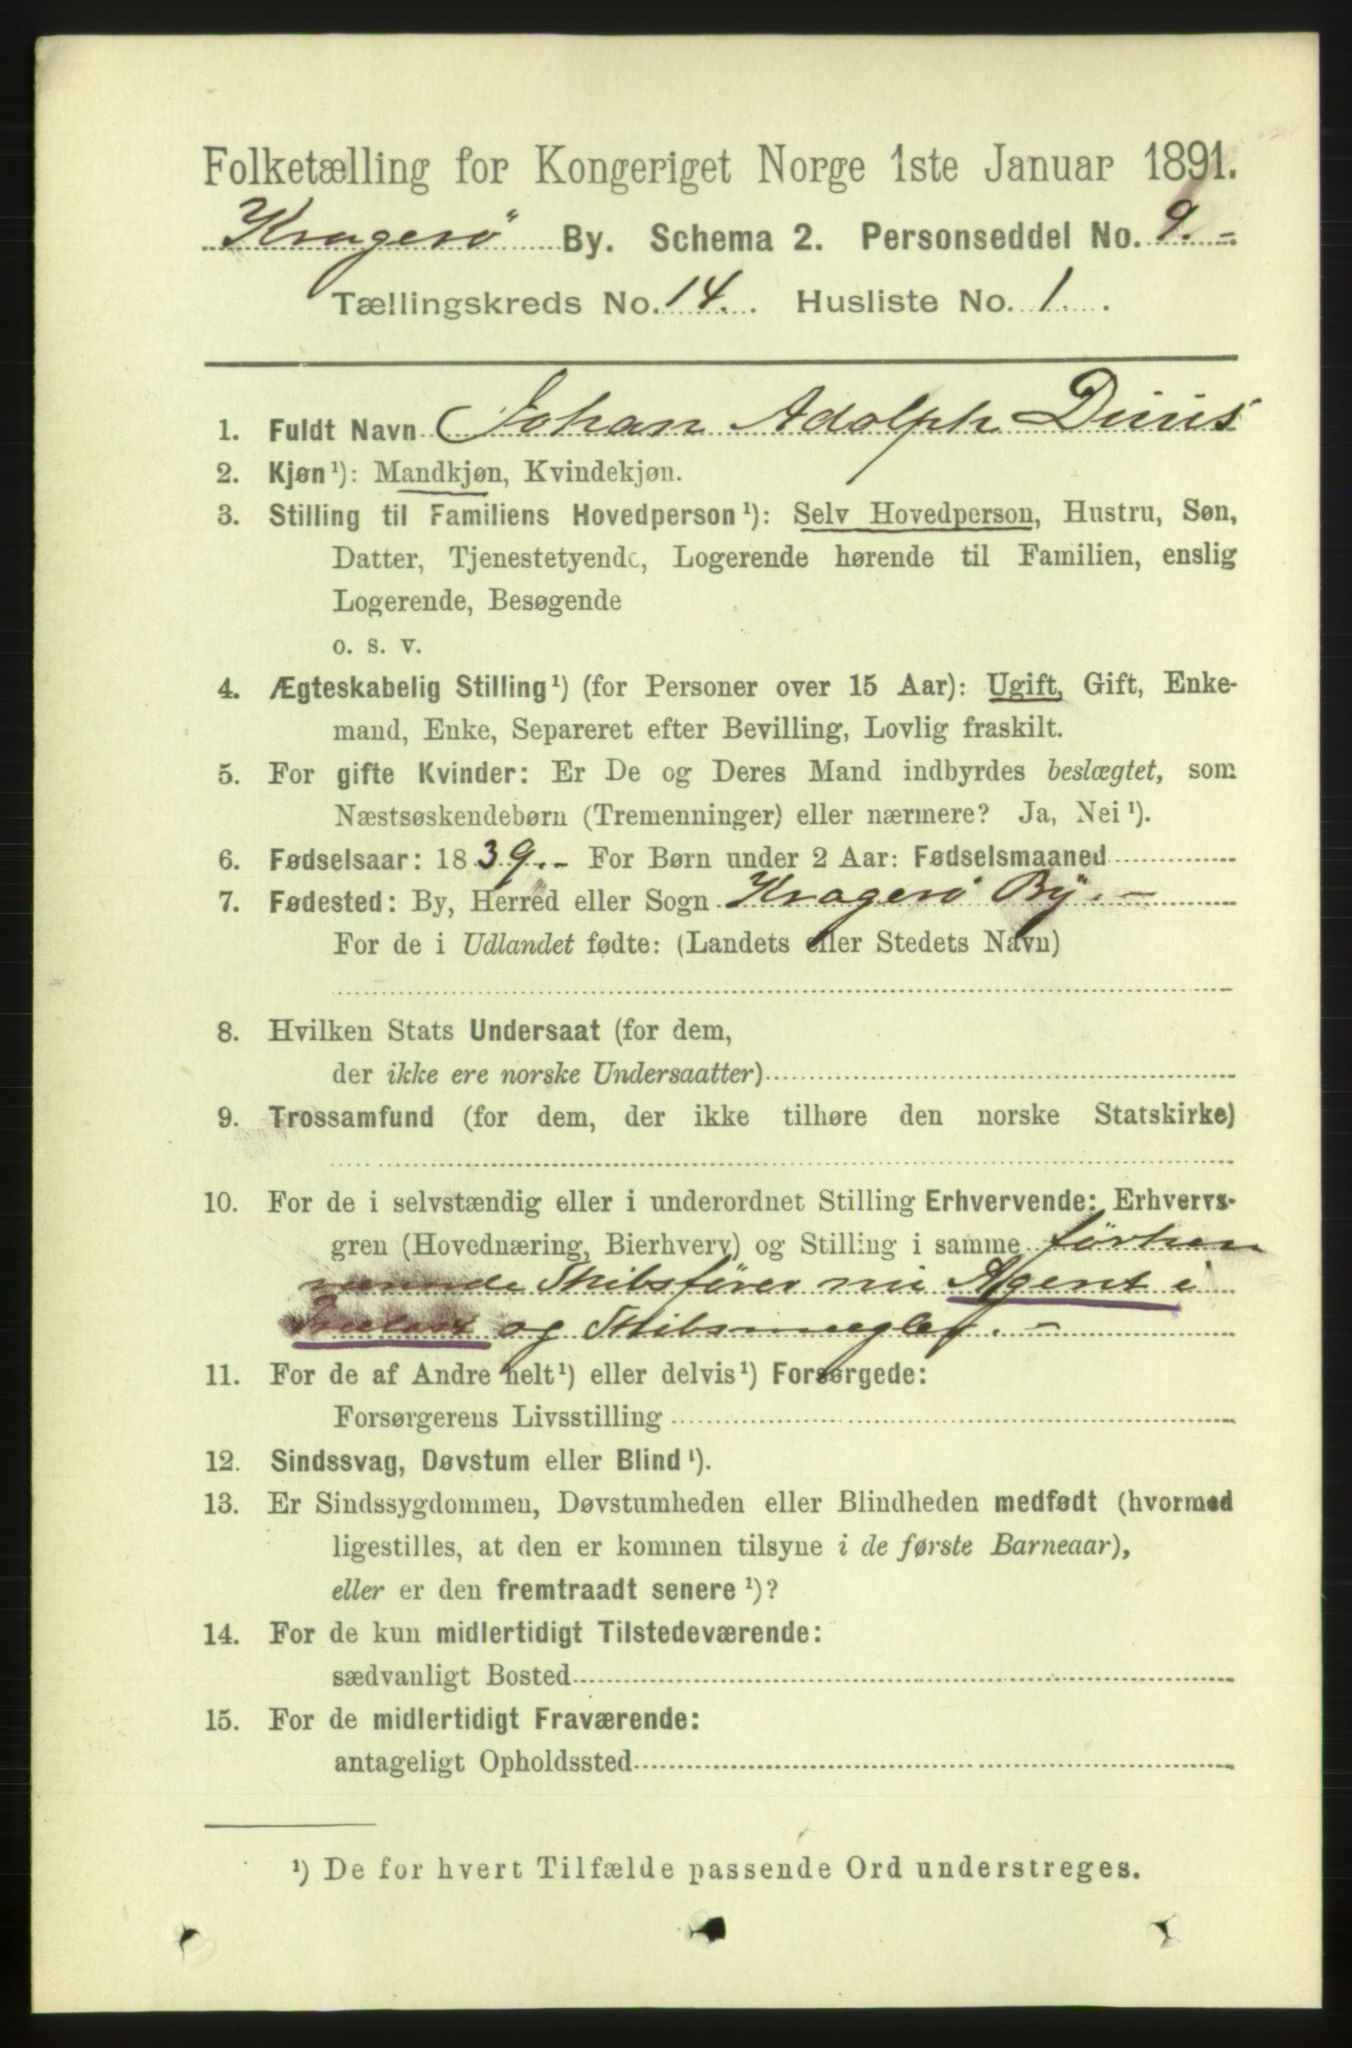 Folketælling for Kongeriget Norge 1ste Januar 1891.
Kragerø By. Schema 2. Personseddel No. 9.-
Tællingskreds No. 14. Husliste No. 1.
1. Fuldt Navn Johan Adolph Diuis
2. Kjøn¹): Mandkjøn, Kvindekjøn.
3. Stilling til Familiens Hovedperson¹): Selv Hovedperson, Hustru, Søn,
Datter, Tjenestetyende, Logerende hørende til Familien, enslig
Logerende, Besøgende
o. s. v.
4. Ægteskabelig Stilling¹) (for Personer over 15 Aar): Ugift, Gift, Enke-
mand, Enke, Separeret efter Bevilling, Lovlig fraskilt.
5. For gifte Kvinder: Er De og Deres Mand indbyrdes beslægtet, som
Næstsøskendebørn (Tremenninger) eller nærmere? Ja, Nei¹).
6. Fødselsaar: 1839.- For Børn under 2 Aar: Fødselsmaaned
7. Fødested: By, Herred eller Sogn Kragerø By.-
For de i Udlandet fødte: (Landets eller Stedets Navn)
8. Hvilken Stats Undersaat (for dem,
der ikke ere norske Undersaatter)
9. Trossamfund (for dem, der ikke tilhøre den norske Statskirke)
10. For de i selvstændig eller i underordnet Stilling Erhvervende: Erhvervs-
gren (Hovednæring, Bierhverv) og Stilling i samme førhen
værende Skibsfører nu Agent i
og Skibsmægler.-
11. For de af Andre helt¹) eller delvis¹) Forsørgede:
Forsørgerens Livsstilling
12. Sindssvag, Døvstum eller Blind¹).
13. Er Sindssygdommen, Døvstumheden eller Blindheden medfødt (hvormed
ligestilles, at den er kommen tilsyne i de første Barneaar),
eller er den fremtraadt senere¹)?
14. For de kun midlertidigt Tilstedeværende:
sædvanligt Bosted
15. For de midlertidigt Fraværende:
antageligt Opholdssted
¹) De for hvert Tilfælde passende Ord understreges.